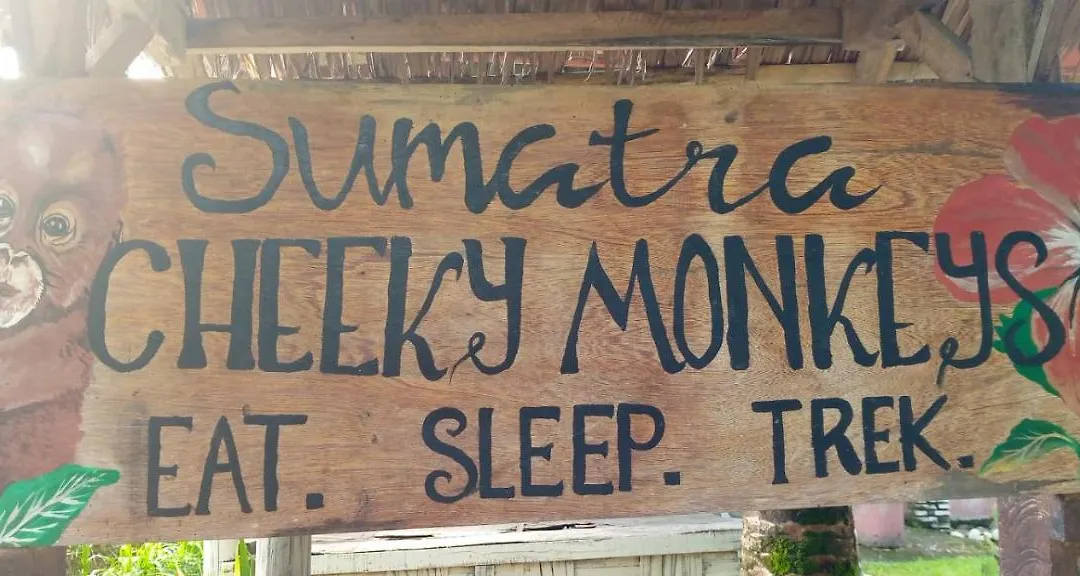 Sumatra
CHEEKY MONKEYS
EAT. SLEEP. TREK.